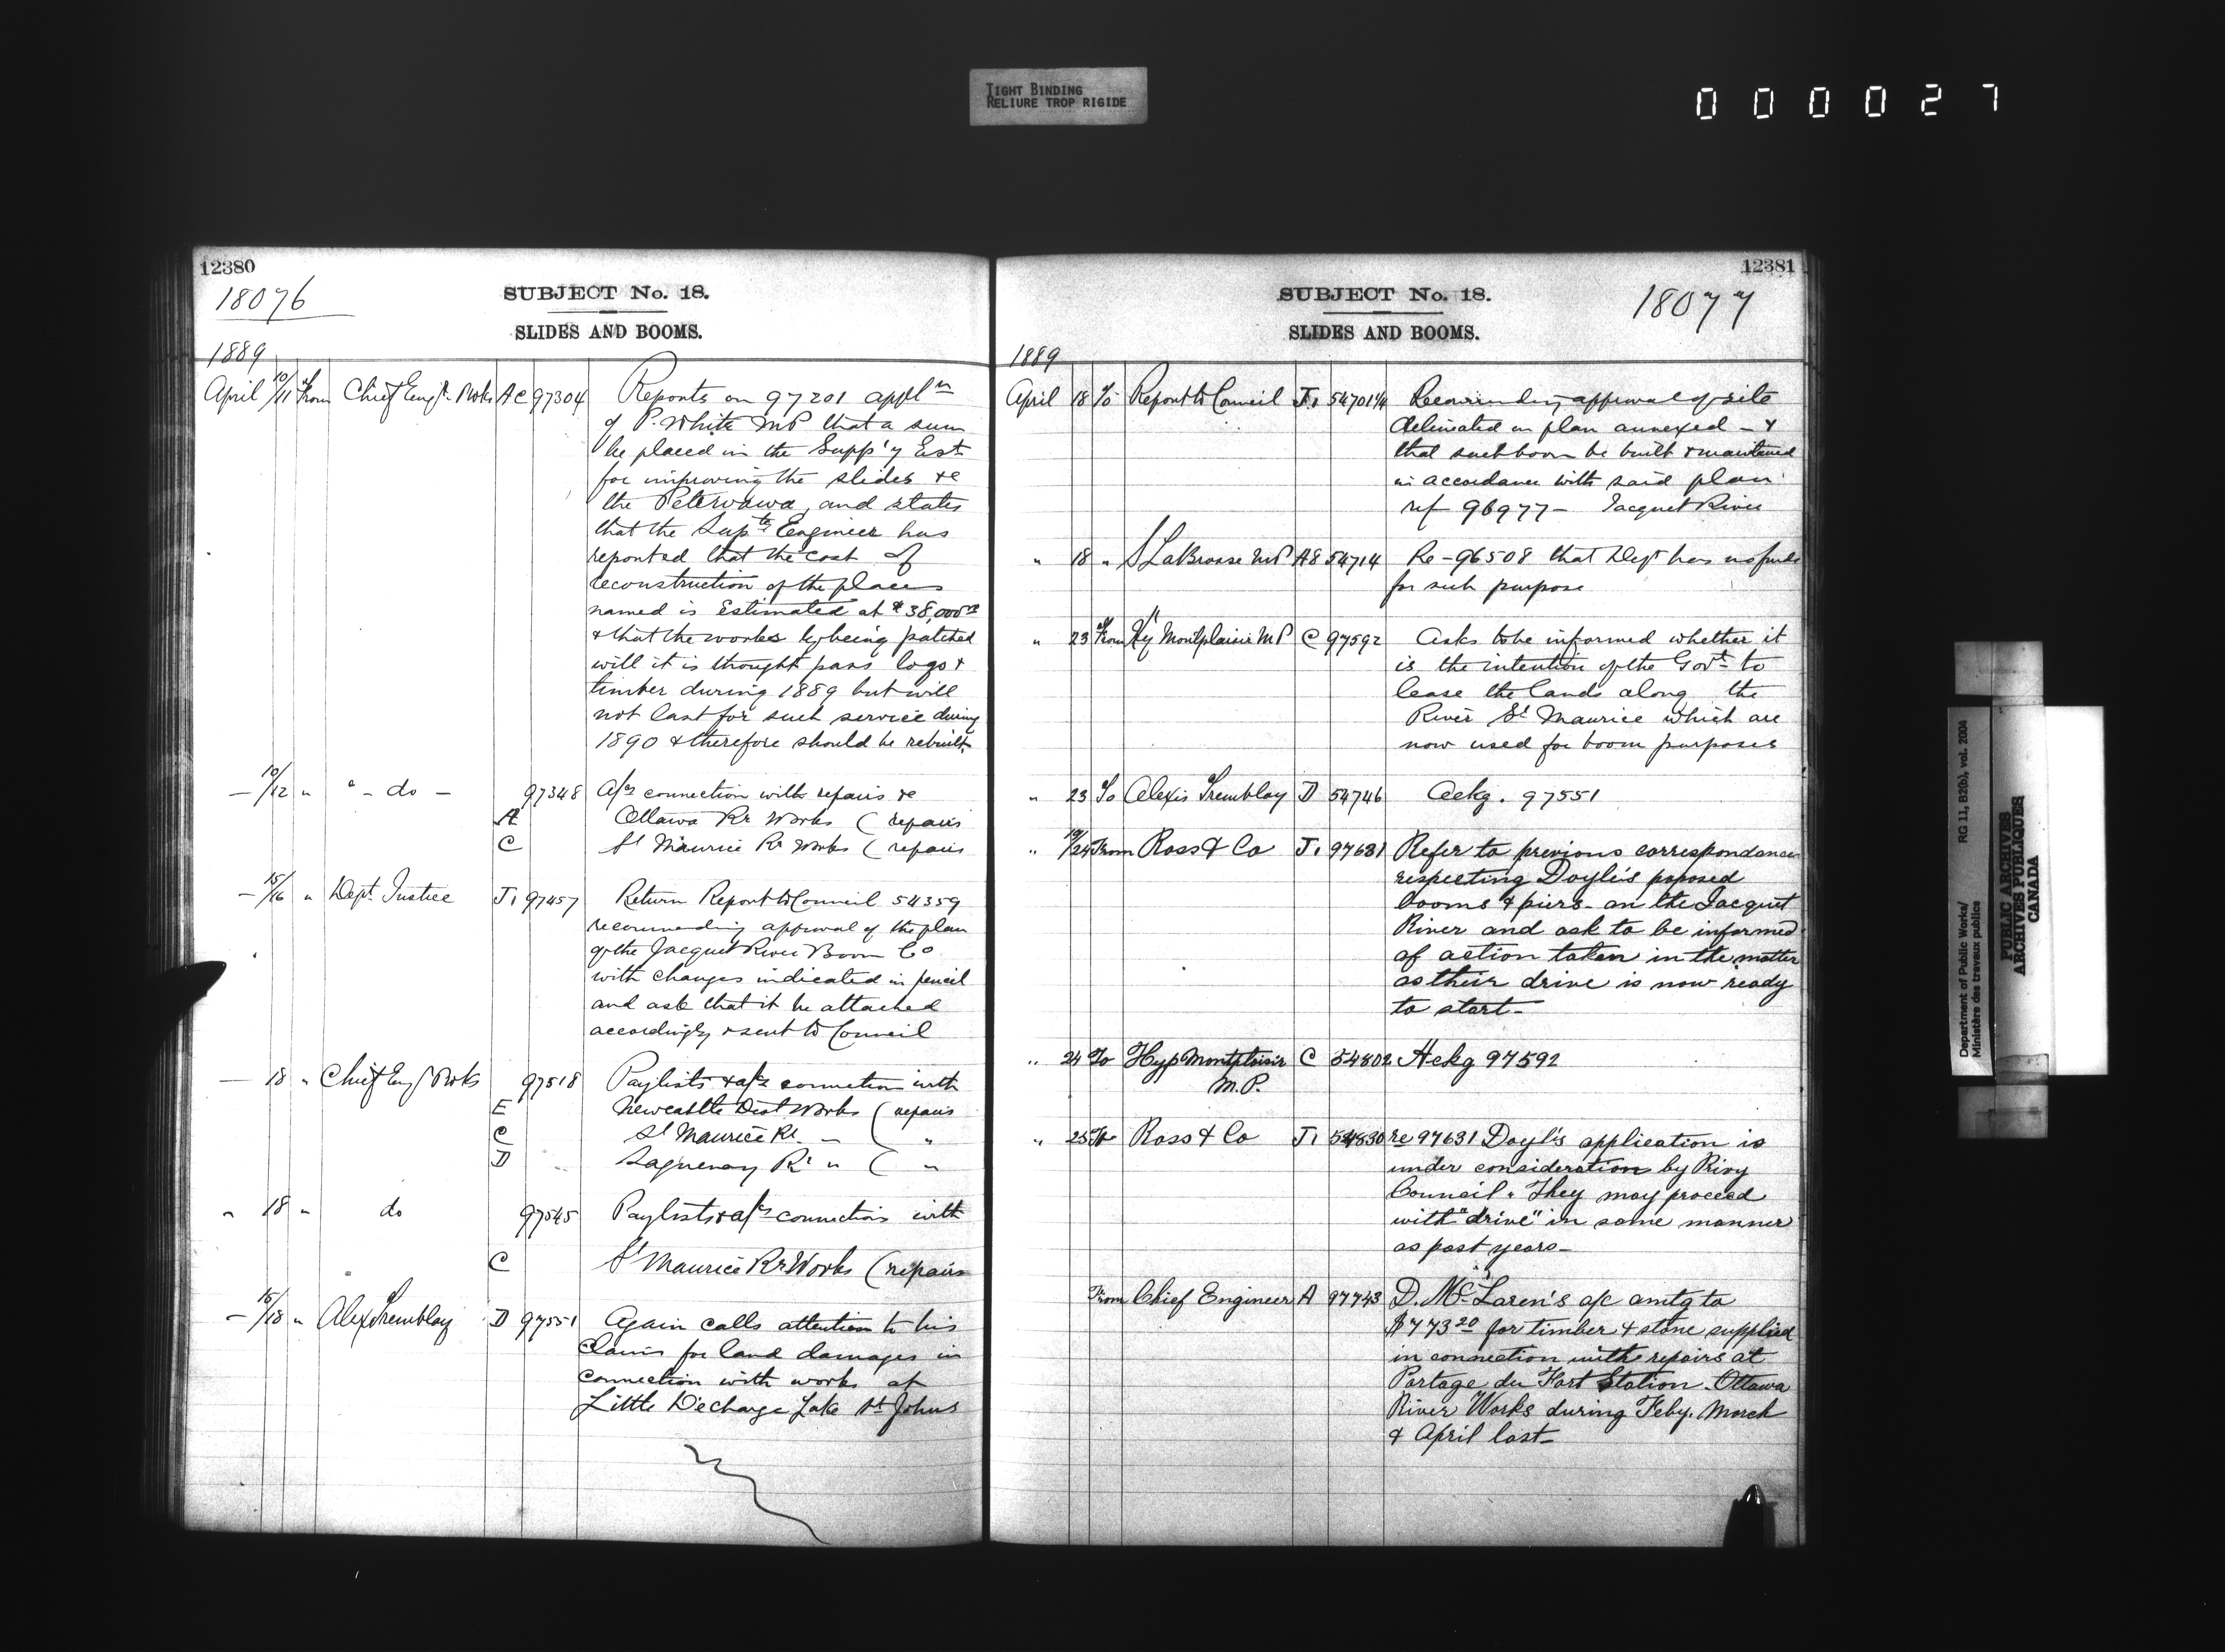 TIGHT BINDING
RELIURE TROP RIGIDE
000027
12380
18076
SUBJECT No. 18.
SLIDES AND BOOMS.
1889
April 10/11 From Chief Engr. Wks A C 97304 Reports on 97201 appl^n
of P. White MP that a sum
be placed in the Supp'y Est.
for improving the slides &c
the Petewawa, and states
that the Sup^tg Engineer has
reported that the cost of
reconstruction of the places
named is estimated at $38,000
& that the works by being patched
will it is thought pass logs &
timber during 1889 but will
not last for such service during
1890 & therefore should be rebuilt
— 10/12 " " - do - 97348 A/cs connection with repairs &c
A Ottawa Rr Works ( repairs
C St Maurice Rr Works ( repairs
— 15/16 " Dept. Justice J1 97457 Return Report to Council 54359
recommending approval of the plan
of the Jacquet River Boom Co
with changes indicated in pencil
and ask that it be attached
accordingly & sent to Council
— 18 " Chief Engr Wks 97518 Paylists & a/cs connection with
E Newcastle Dist Works ( repairs
C St Maurice Rr. — ( "
D Saguenay Rr " ( "
" 18 " do 97545 Paylists & a/cs connection with
C St Maurice Rr Works ( repairs
— 15/18 " Alex Tremblay D 97551 Again calls attention to his
Claim for land damages in
connection with works at
Little Décharge Lake St Johns
12381
18077
SUBJECT No. 18.
SLIDES AND BOOMS.
1889
April 18 To Report to Council J1 54701¼ Recommending approval of site
delineated on plan annexed — &
that such boom be built & maintained
in accordance with said plan
ref 96977 — Jacquet River
" 18 " S LaBrosse MP A8 54714 Re - 96508 that Dept has no funds
for such purpose
" 23 From Hy Montplaisir MP C 97592 Asks to be informed whether it
is the intention of the Govt to
lease the lands along the
River St Maurice which are
now used for boom purposes
" 23 To Alexis Tremblay D 54746 Ackg. 97551
" 19/24 From Ross & Co J1 97631 Refer to previous correspondence
respecting Doyle's poposed
booms & piers - on the Jacquet
River and ask to be informed
of action taken in the matter
as their drive is now ready
to start —
" 24 To Hyp Montplaisir C 54802 Ackg 97592
M.P.
" 25 To Ross & Co J1 54830 re 97631 Doyl's application is
under consideration by Privy
Council. They may proceed
with "drive" in same manner
as past years —
From Chief Engineer A 97743 D. McLaren's a/c amtg to
$773.20 for timber & stone supplied
in connection with repairs at
Portage du Fort Station. Ottawa
River Works during Feby. March
& April last —
Department of Public Works/
Ministère des travaux publics
RG 11, B2(b), vol. 2004
PUBLIC ARCHIVES
ARCHIVES PUBLIQUES
CANADA